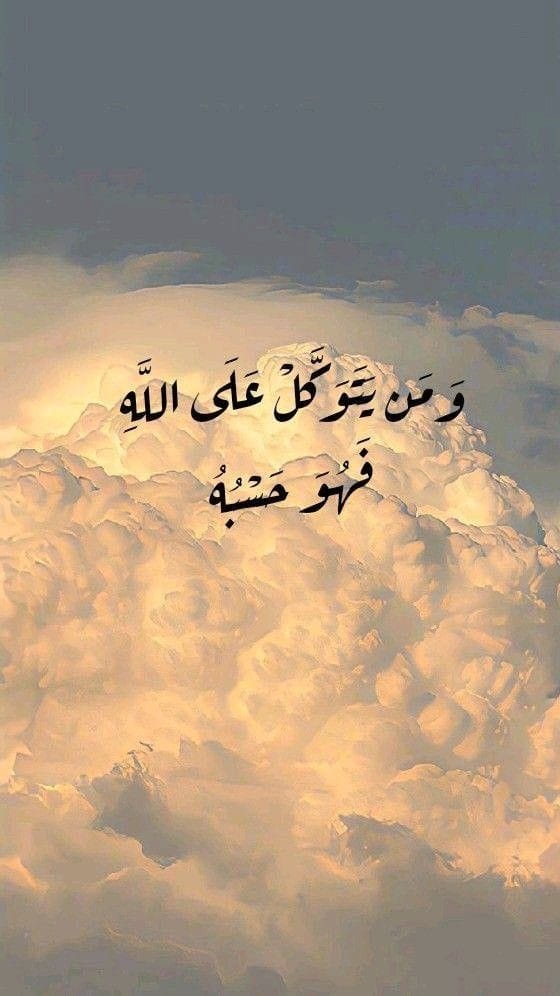 وَمَن يَتَوَكَّلْ عَلَى اللَّهِ
فَهُوَ حَسْبُهُ